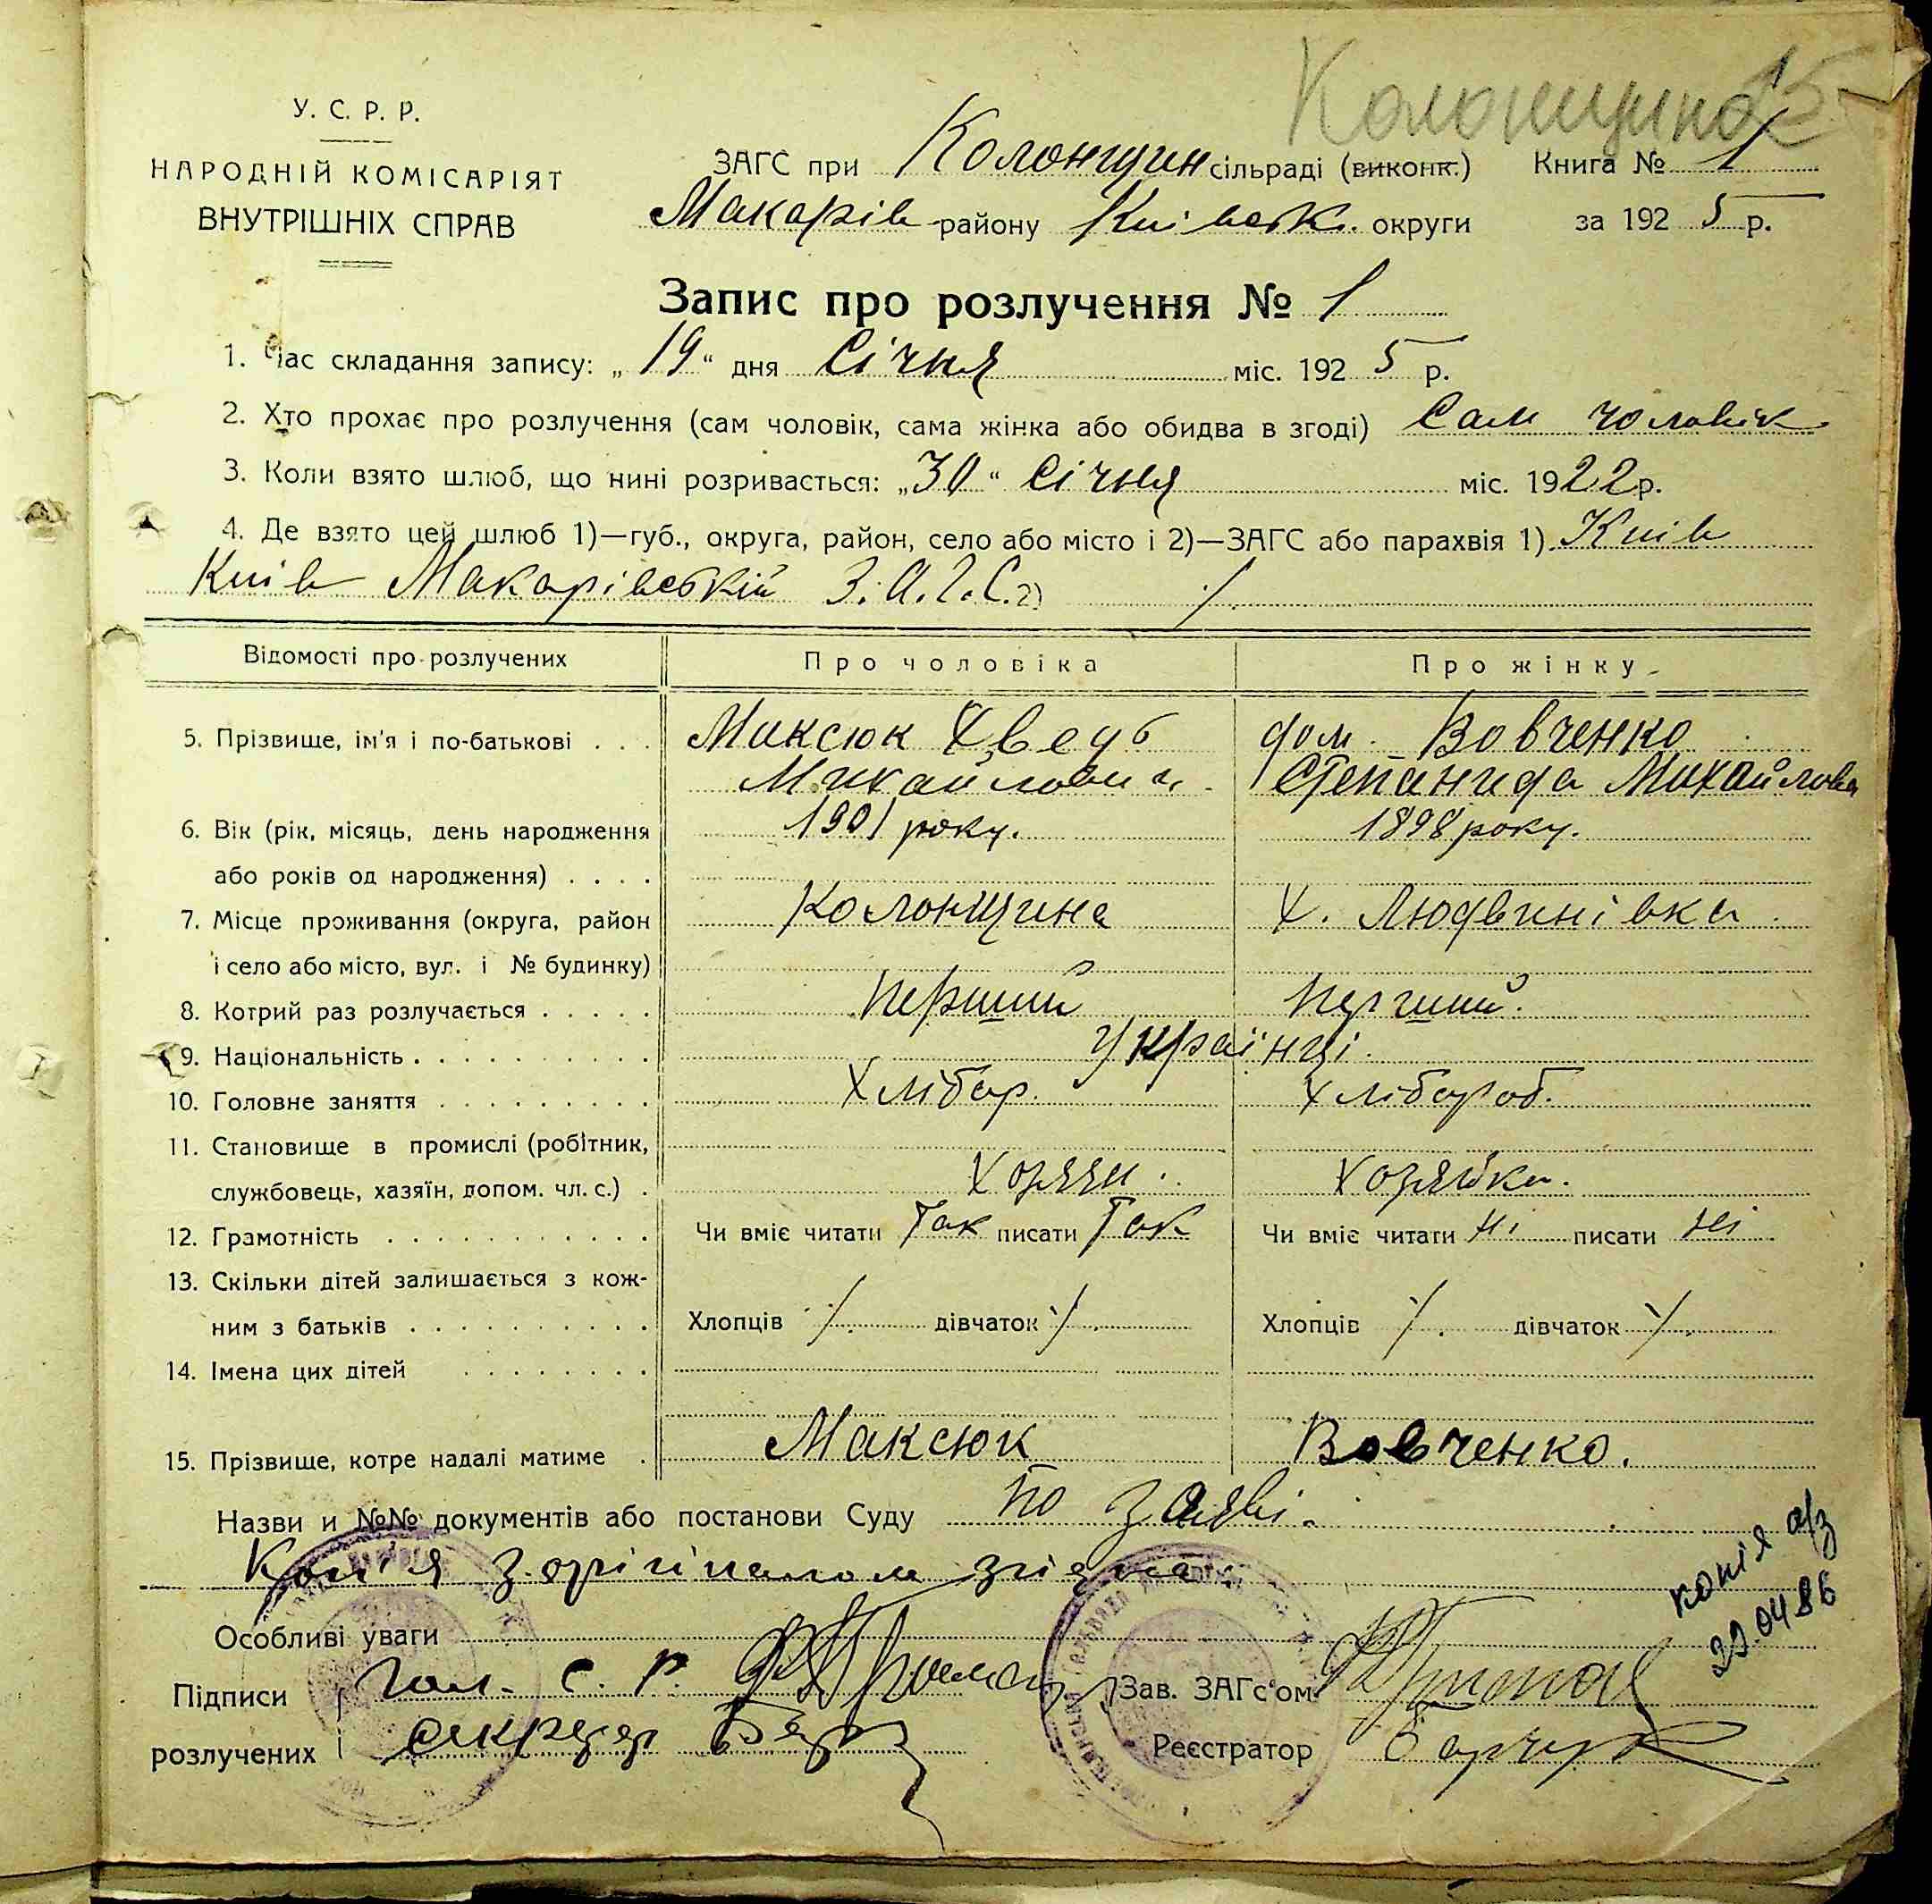 Колонщина
У. С. Р. Р.
НАРОДНІЙ КОМІСАРІЯТ
ВНУТРІШНІХ СПРАВ
ЗАГС при Колонщин сільраді (виконк.) Книга № 1
Макарів району Київськ. округи за 1925 р.
Запис про розлучення № 1
1. Час складання запису: „19“ дня Січня міс. 1925 р.
2. Хто прохає про розлучення (сам чоловік, сама жінка або обидва в згоді) Сам чоловік
3. Коли взято шлюб, що нині розривається: „30“ Січня міс. 1922 р.
4. Де взято цей шлюб 1)—губ., округа, район, село або місто і 2)—ЗАГС або парахвія 1) Київ
Київ Макарівській З.А.Г.С. 2)
Відомості про розлучених Про чоловіка Про жінку
5. Прізвище, ім'я і по-батькові . . . Максюк Хведь дом. Вовченко
Михайлович Степанида Михайлова
6. Вік (рік, місяць, день народження 1901 року. 1898 року.
або років од народження) . . . .
7. Місце проживання (округа, район Колонщина Х. Людвинівка
і село або місто, вул. і № будинку)
8. Котрий раз розлучається . . . . . Перший Перший.
9. Національність . . . . . . . . . . Українці.
10. Головне заняття . . . . . . . . . Хлібор. Хлібороб.
11. Становище в промислі (робітник,
службовець, хазяїн, допом. чл. с.) . Хозяин. Хозяйка.
12. Грамотність . . . . . . . . . . . Чи вміє читати Так писати Так Чи вміє читати Ні писати Ні
13. Скільки дітей залишається з кож-
ним з батьків . . . . . . . . . . Хлопців /. дівчаток /. Хлопців /. дівчаток /.
14. Імена цих дітей . . . . . . . .
15. Прізвище, котре надалі матиме . Максюк Вовченко.
Назви и №№ документів або постанови Суду по заяві.
Копія з орігіналом згідна
копія а/з
Особливі уваги
22.04.86
Підписи Гол. с. р. Зав. ЗАГс'ом
розлучених секретар Реєстратор